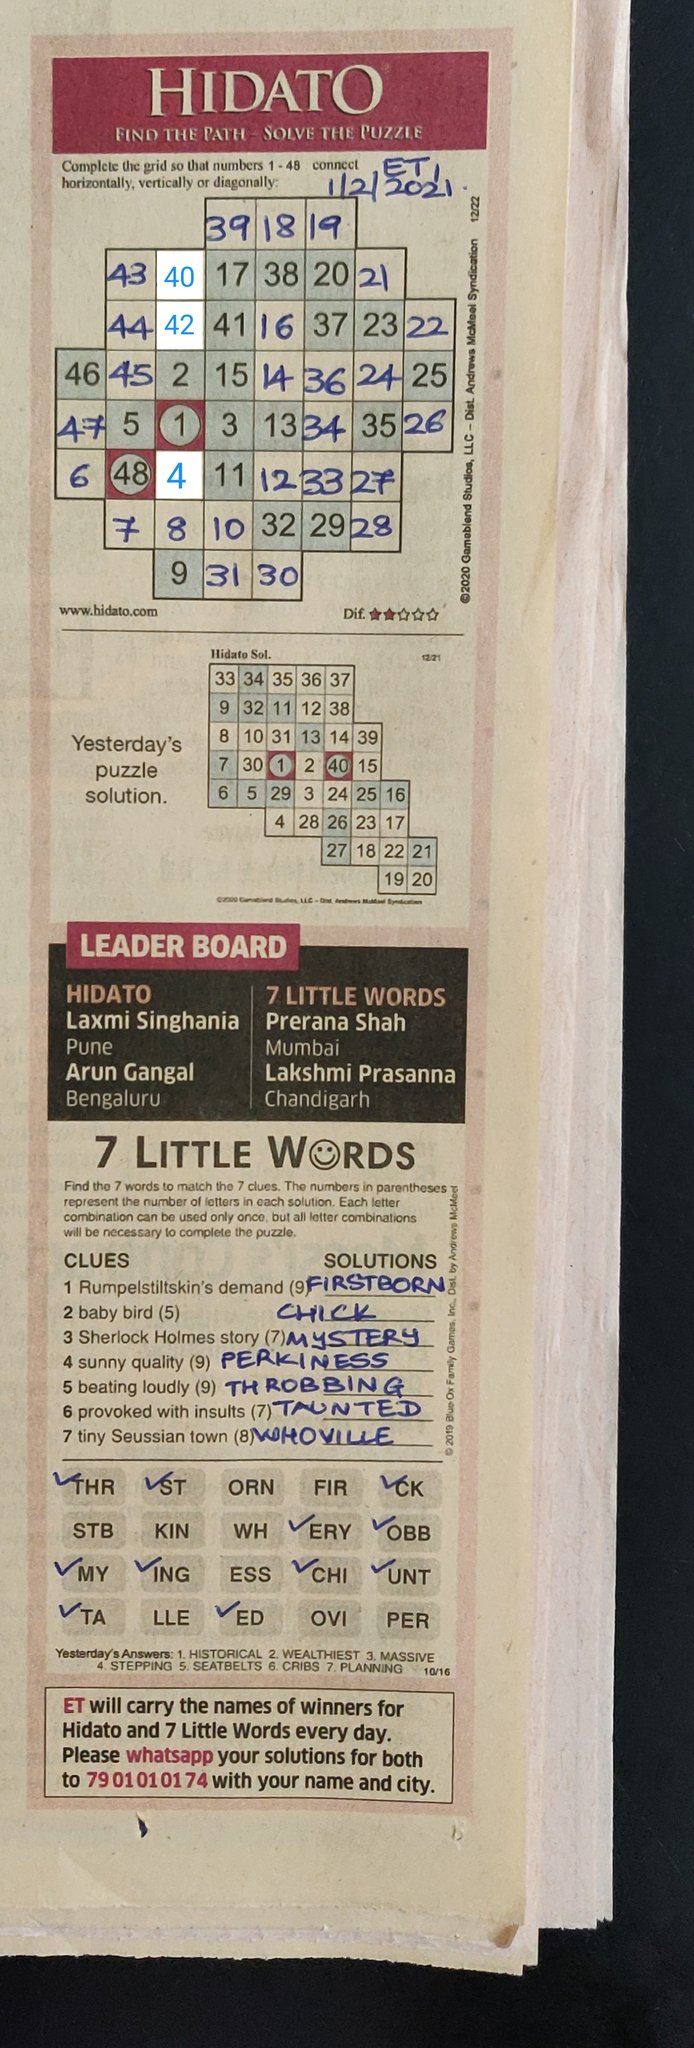 HIDATO
FIND THE PATH - SOLVE THE PUZZLE
Complete the grid so that numbers 1 - 48 connect
horizontally, vertically or diagonally:
ET,
1/2/2021.
12/22
39 18 19
43 40 17 38 20 21
44 42 41 16 37 23 22
46 45 2 15 14 36 24 25
47 5 1 3 13 34 35 26
6 48 4 11 12 33 27
7 8 10 32 29 28
9 31 30
©2020 Gameblend Studios, LLC – Dist. Andrews McMeel Syndication
www.hidato.com
Dif. ★★☆☆☆
Hidato Sol.
12/21
33 34 35 36 37
9 32 11 12 38
8 10 31 13 14 39
7 30 1 2 40 15
6 5 29 3 24 25 16
4 28 26 23 17
27 18 22 21
19 20
Yesterday's
puzzle
solution.
©2020 Gameblend Studios, LLC – Dist. Andrews McMeel Syndication
LEADER BOARD
HIDATO
Laxmi Singhania
Pune
Arun Gangal
Bengaluru
7 LITTLE WORDS
Prerana Shah
Mumbai
Lakshmi Prasanna
Chandigarh
7 LITTLE WORDS
Find the 7 words to match the 7 clues. The numbers in parentheses
represent the number of letters in each solution. Each letter
combination can be used only once, but all letter combinations
will be necessary to complete the puzzle.
CLUES SOLUTIONS
1 Rumpelstiltskin's demand (9) FIRSTBORN
2 baby bird (5) CHICK
3 Sherlock Holmes story (7) MYSTERY
4 sunny quality (9) PERKINESS
5 beating loudly (9) THROBBING
6 provoked with insults (7) TAUNTED
7 tiny Seussian town (8) WHOVILLE
© 2019 Blue Ox Family Games, Inc., Dist. by Andrews McMeel
THR ST ORN FIR CK
STB KIN WH ERY OBB
MY ING ESS CHI UNT
TA LLE ED OVI PER
Yesterday's Answers: 1. HISTORICAL 2. WEALTHIEST 3. MASSIVE
4. STEPPING 5. SEATBELTS 6. CRIBS 7. PLANNING 10/16
ET will carry the names of winners for
Hidato and 7 Little Words every day.
Please whatsapp your solutions for both
to 7901010174 with your name and city.